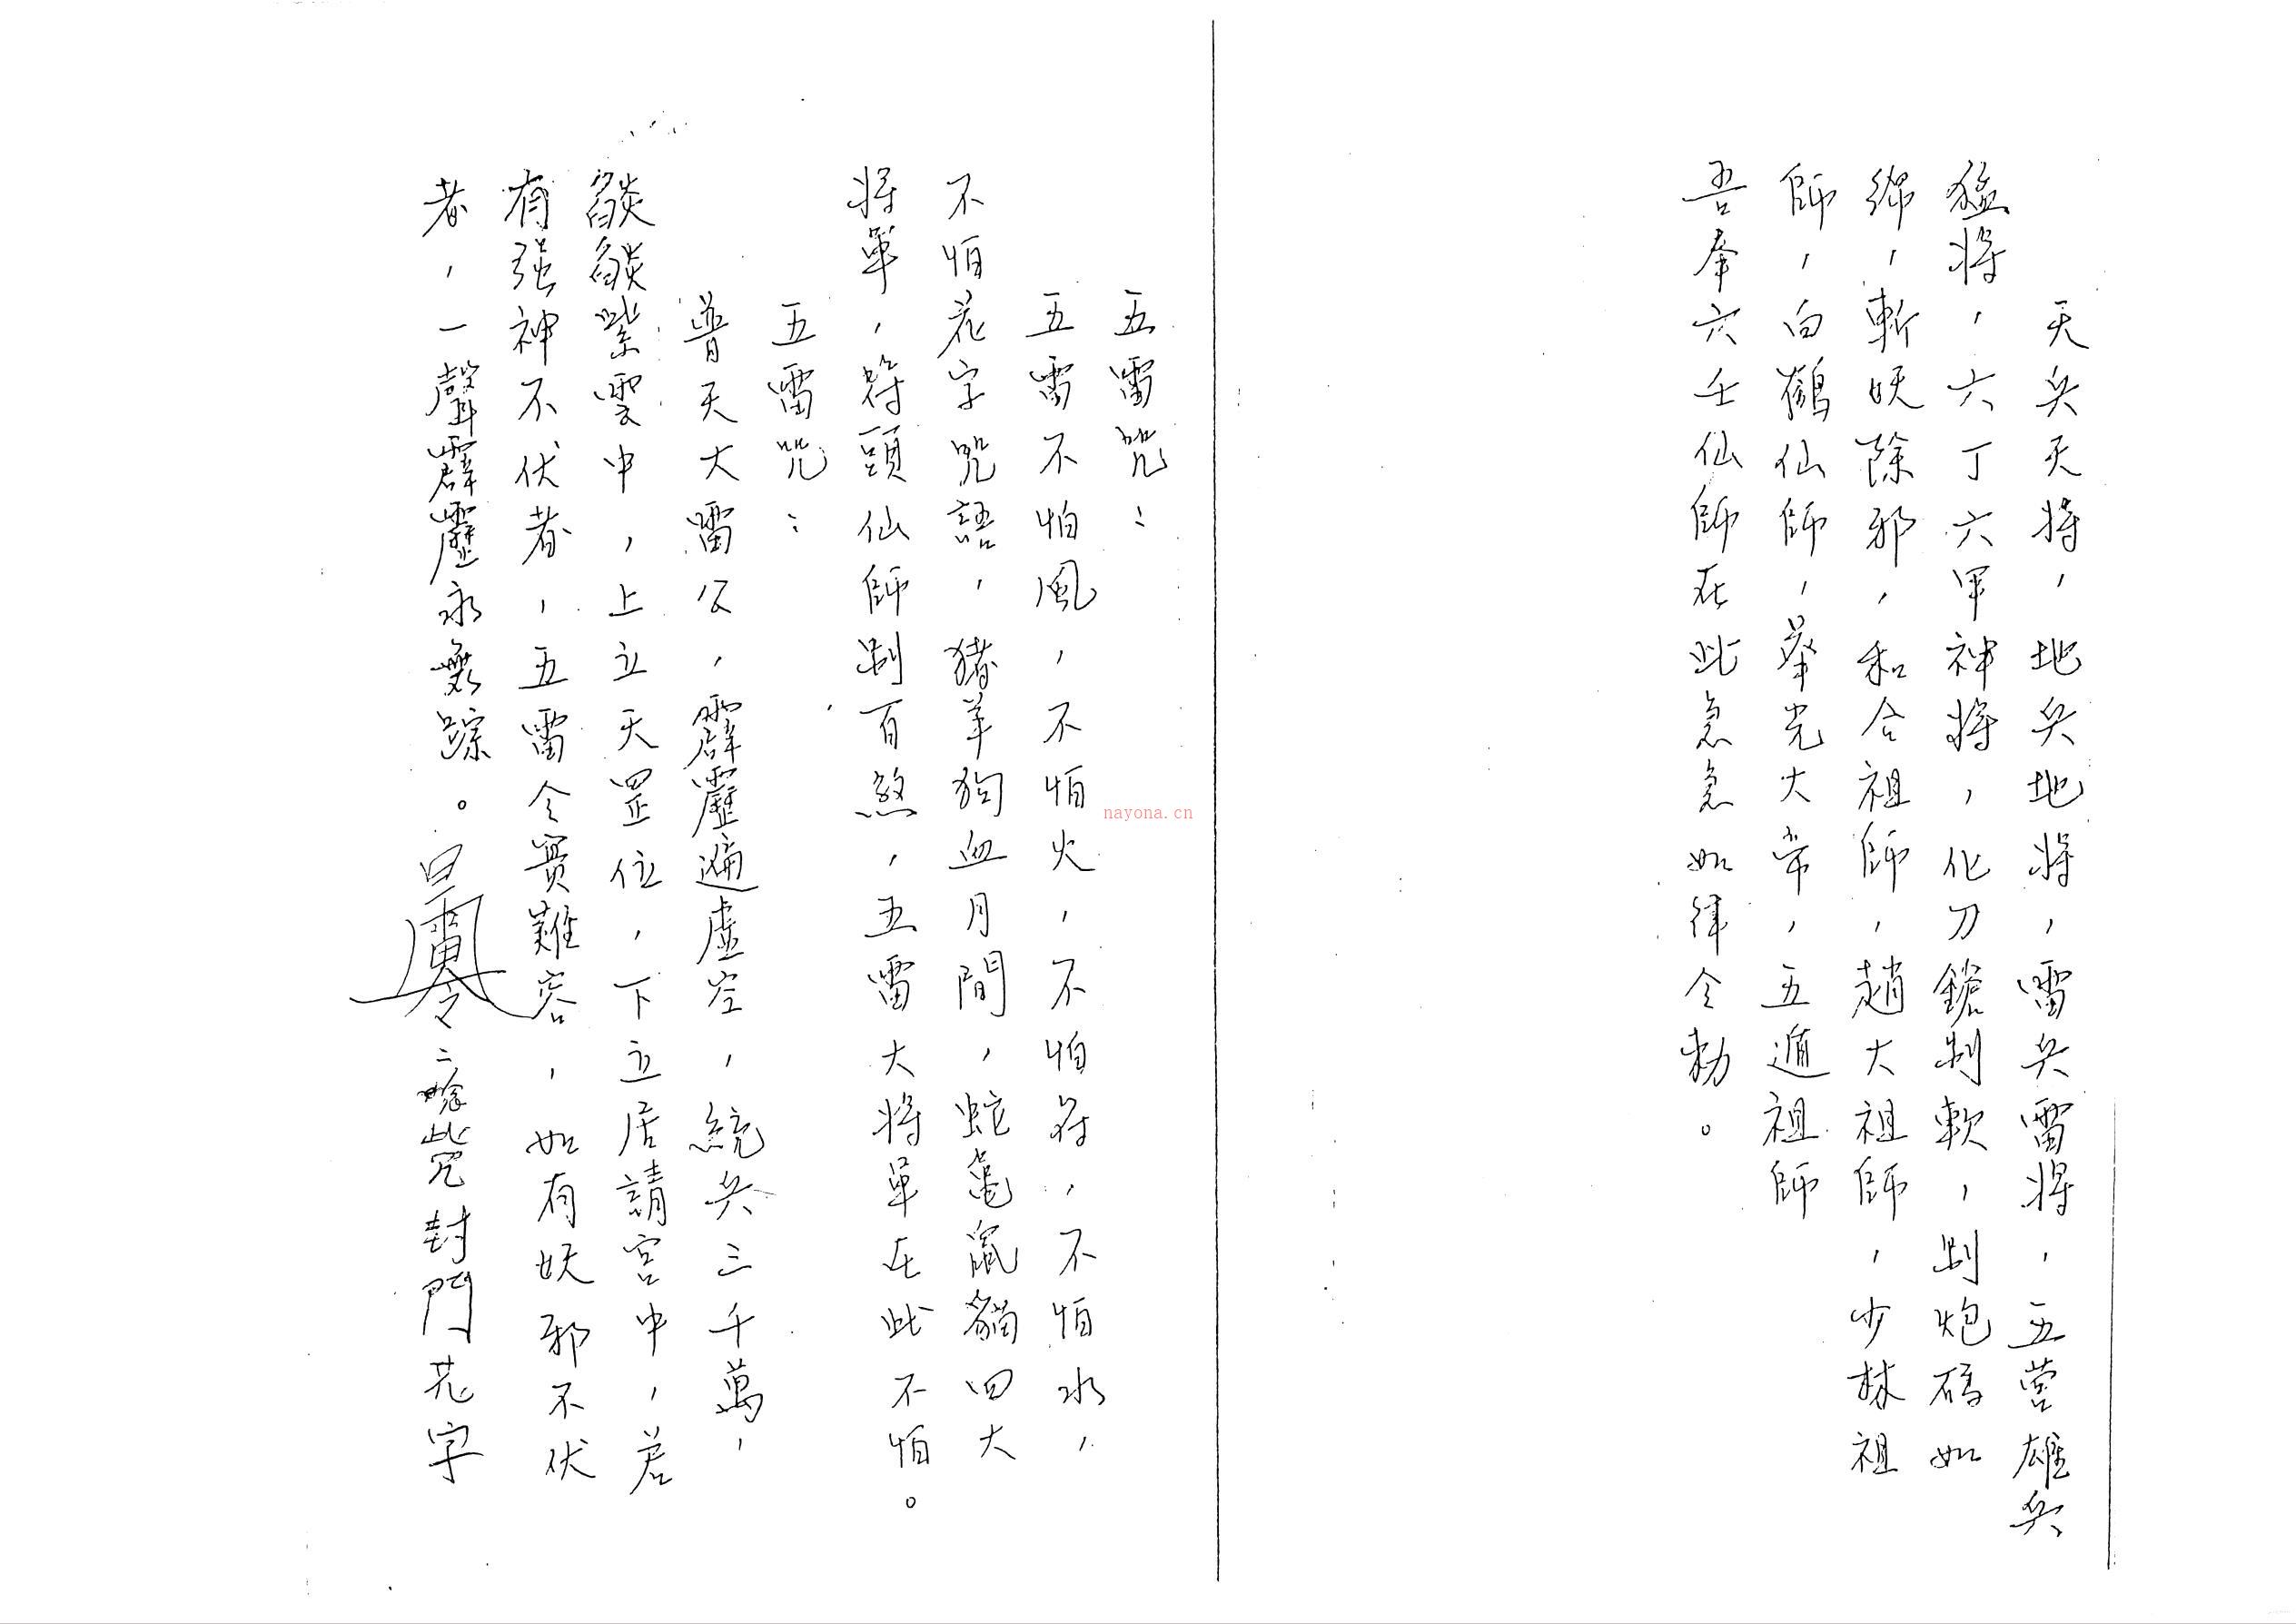 天兵天将，地兵地将，雷兵雷将，五營雄兵
猛将，六丁六甲神將，化刀鎗制軟，制炮碼如
綿，斬妖除邪，和合祖師，趙大祖師，少林祖
師，白鶴仙師，舉光大帝，五遁祖師
吾奉六壬仙師在此急急如律令勅。
五雷咒：
五雷不怕風，不怕火，不怕符，不怕水，
不怕花字咒語，豬羊狗血月間，蛇龜鼠貓四大
将軍，符頭仙師制百煞，五雷大将軍在此不怕。
五雷咒：
普天大雷公，霹靂遍虛空，統兵三千萬，
燄燄紫雲中，上立天罡位，下立居請宮中，若
有强神不伏者，五雷令實難容，如有妖邪不伏
者，一聲霹靂永無踪。
唸此咒封門花字
nayona.cn